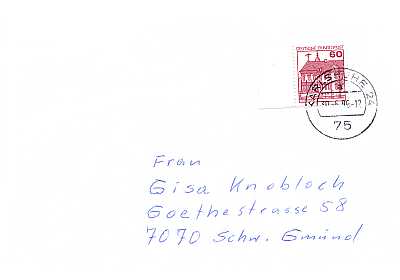 DEUTSCHE BUNDESPOST
60
KARLSRUHE 24
75
Frau
Gisa Knobloch
Goethestrasse 58
7070 Schw. Gmünd